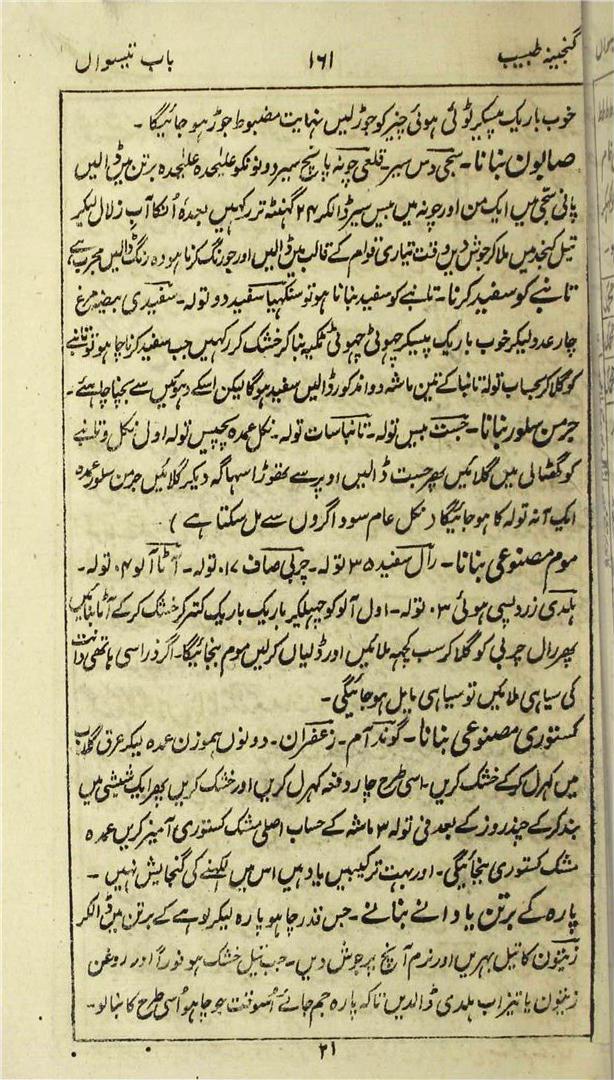 گنجینہ طبیب ۱۶۱ باب تیسواں
خوب باریک پیسکر ٹوٹی ہوئی چیز کو جوڑ لیں نہایت مضبوط جوڑ ہو جائیگا۔
صابون بنانا۔ سجی دس سیر۔ قلعی چونہ پانچ سیر دونونکو علیٰحدہ علیٰحدہ برتن میں ڈالیں
پانی سجی میں ایک من اور چونہ میں بیس سیر ڈالکر ۲۴ گھنٹہ تر رکہیں بعدہٗ اُنکا آب زلال لیکر
تیل کنجد میں ملا کر جوش دیں وقت تیاری قوام کے قالب میں ڈالیں اور جو رنگ کرنا ہو وہ رنگ ڈالیں مجرب ہے
تانبے کو سفید کرنا۔ تانبے کو سفید بنانا ہو تو سنکہیا سفید دو تولہ۔ سفیدی بیضہ مرغ
چار عدد لیکر خوب باریک پیسکر چہوٹی چہوٹی ٹکیہ بنا کر خشک کر رکہیں جب سفید کرنا چاہو تو تانبے
کو گلا کر بحساب تولہ تانبا کے تین ماشہ دوا مذکور ڈالیں سفید ہوگا لیکن اسکے دہوئیں سے بچنا چاہئے۔
جرمن سلور بنانا۔ جست بیس تولہ۔ تانبا سات تولہ۔ نکل عمدہ پچیس تولہ اول نکل و تانبے
کو گٹھالی میں گلائیں پھر جست ڈالیں اوپر سے تھوڑا سہاگہ دیکر گلائیں جرمن سلور عمدہ
ایک آنہ تولہ کا ہو جائیگا (نکل عام سوداگروں سے مل سکتا ہے)۔
موم مصنوعی بنانا۔ رال سفید ۳۵ تولہ۔ چربی صاف ۱۷۰ تولہ۔ آٹا آلو ۴۰ تولہ۔
ہلدی زرد پسی ہوئی ۰۳ تولہ۔ اول آلو کو چہیلکر باریک باریک کتر کر خشک کر کے آٹا بنائیں
پھر رال چربی کو گلا کر سب کچہہ ملائیں اور ڈلیاں کرلیں موم بنجائیگا۔ اگر ذرا سی ہاتھی دانت
کی سیاہی ملائیں تو سیاہی مایل ہو جائیگی۔
کستوری مصنوعی بنانا۔ گوند آم۔ زعفران۔ دونوں ہموزن عمدہ لیکر عرق گلاب
میں کہرل کر کے خشک کریں۔ اسی طرح چار دفعہ کہرل کریں اور خشک کریں پھر ایک شیشی میں
بند کر کے چند روز کے بعد فی تولہ ۳ ماشہ کے حساب اصلی مشک کستوری آمیز کریں عمدہ
مشک کستوری بنجائیگی۔ اور بہت ترکیبیں یاد ہیں اس میں لکہنے کی گنجایش نہیں۔
پارہ کے برتن یا دانے بنانے۔ جس قدر چاہو پارہ لیکر لوہے کے برتن میں ڈالکر
زیتون کا تیل بہریں اور نرم آنچ پر جوش دیں۔ جب تیل خشک ہو فوراً اور روغن
زیتون یا تیزاب ہلدی ڈالدیں تاکہ پارہ جم جائے اُسوقت جو چاہو اُسی طرح کا بنالو۔
۲۱